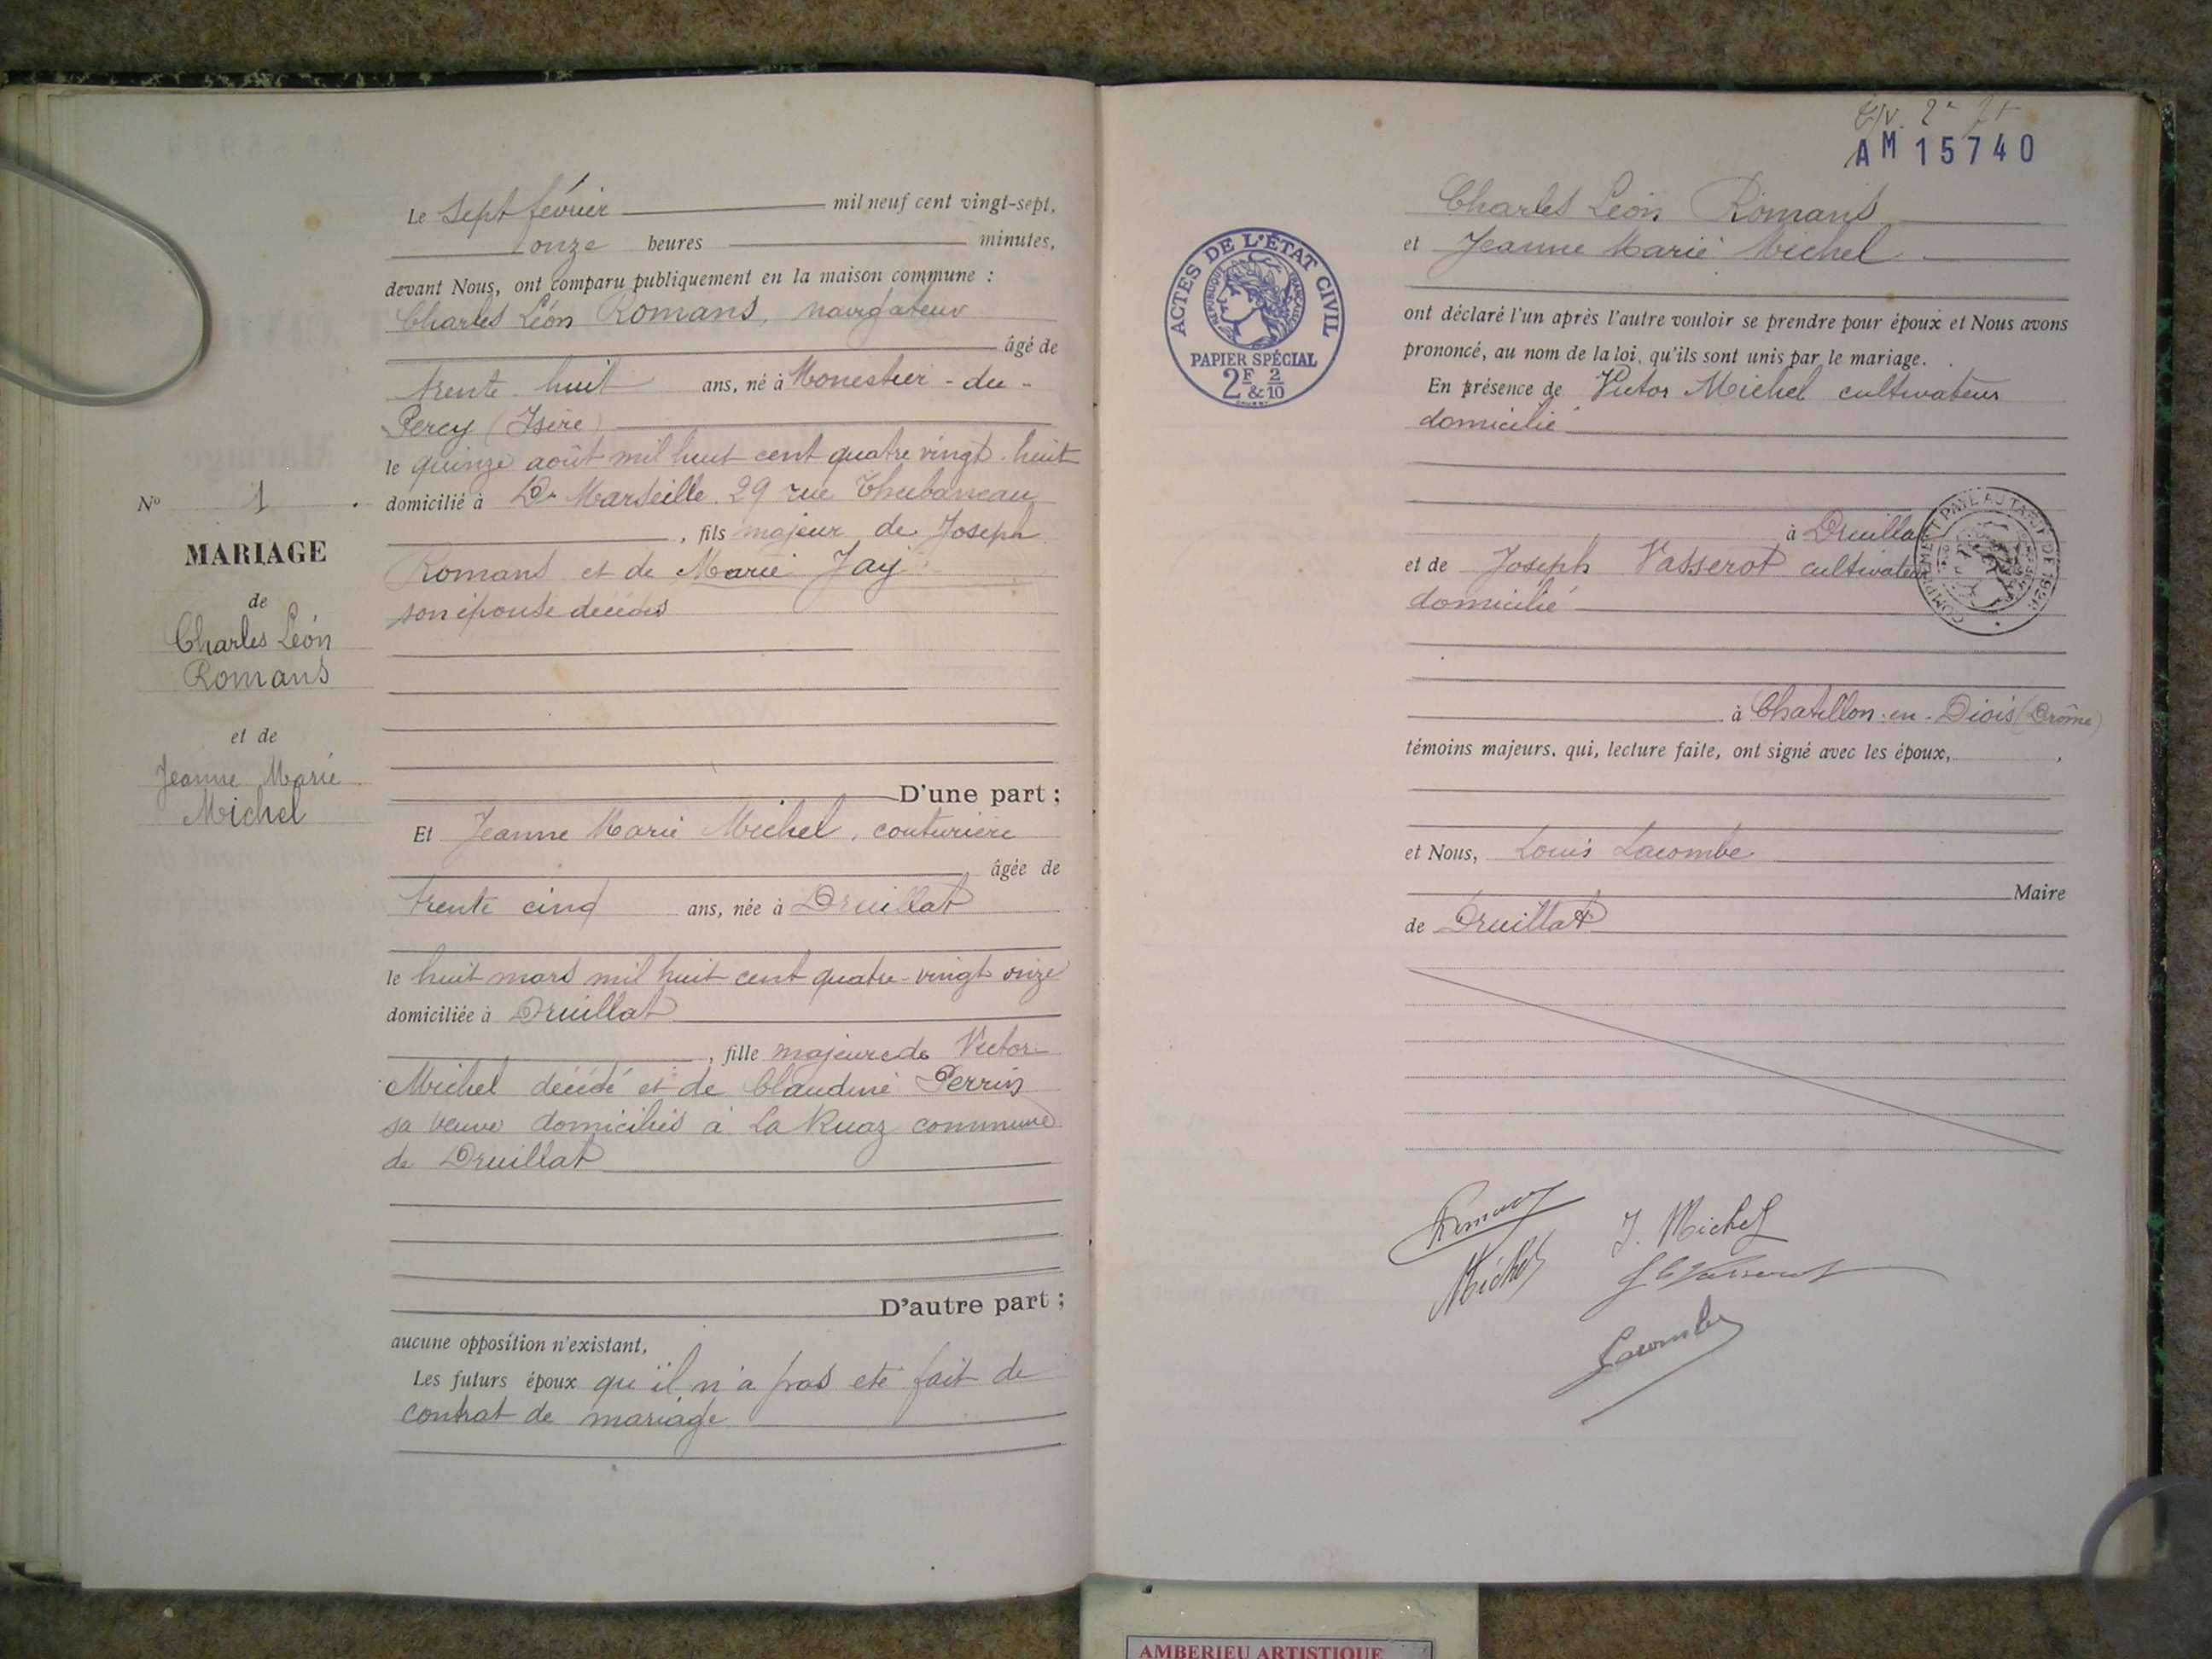 Le sept février mil neuf cent vingt-sept,
onze heures minutes,
devant Nous, ont comparu publiquement en la maison commune :
Charles Léon Romans, navigateur
âgé de
trente huit ans, né à Monestier-du-
Percy (Isère)
le quinze août mil huit cent quatre vingt-huit
domicilié à Marseille 29 rue Thubaneau
, fils majeur de Joseph
Romans et de Marie Jay
son épouse décédés
D'une part ;
Et Jeanne Marie Michel, couturière
âgée de
trente cinq ans, née à Druillat
le huit mars mil huit cent quatre-vingt onze
domiciliée à Druillat
, fille majeure de Victor
Michel décédé et de Claudine Perrin
sa veuve domiciliés à La Ruaz commune
de Druillat
D'autre part ;
aucune opposition n'existant,
Les futurs époux qu'il n'a pas eté fait de
contrat de mariage
No 1
MARIAGE
de
Charles Léon
Romans
et de
Jeanne Marie
Michel
AM 15740
ACTES DE L'ÉTAT CIVIL
RÉPUBLIQUE FRANÇAISE
PAPIER SPÉCIAL
2F & 2/10
Charles Léon Romans
et Jeanne Marie Michel
ont déclaré l'un après l'autre vouloir se prendre pour époux et Nous avons
prononcé, au nom de la loi, qu'ils sont unis par le mariage.
En présence de Victor Michel cultivateur
domicilié
à Druillat
et de Joseph Vasserot cultivateur
domicilié
à Chatillon-en-Diois (Drôme)
témoins majeurs, qui, lecture faite, ont signé avec les époux,
et Nous, Louis Lacombe
Maire
de Druillat
J. Michel
Michel
Lacombe
AMBERIEU ARTISTIQUE